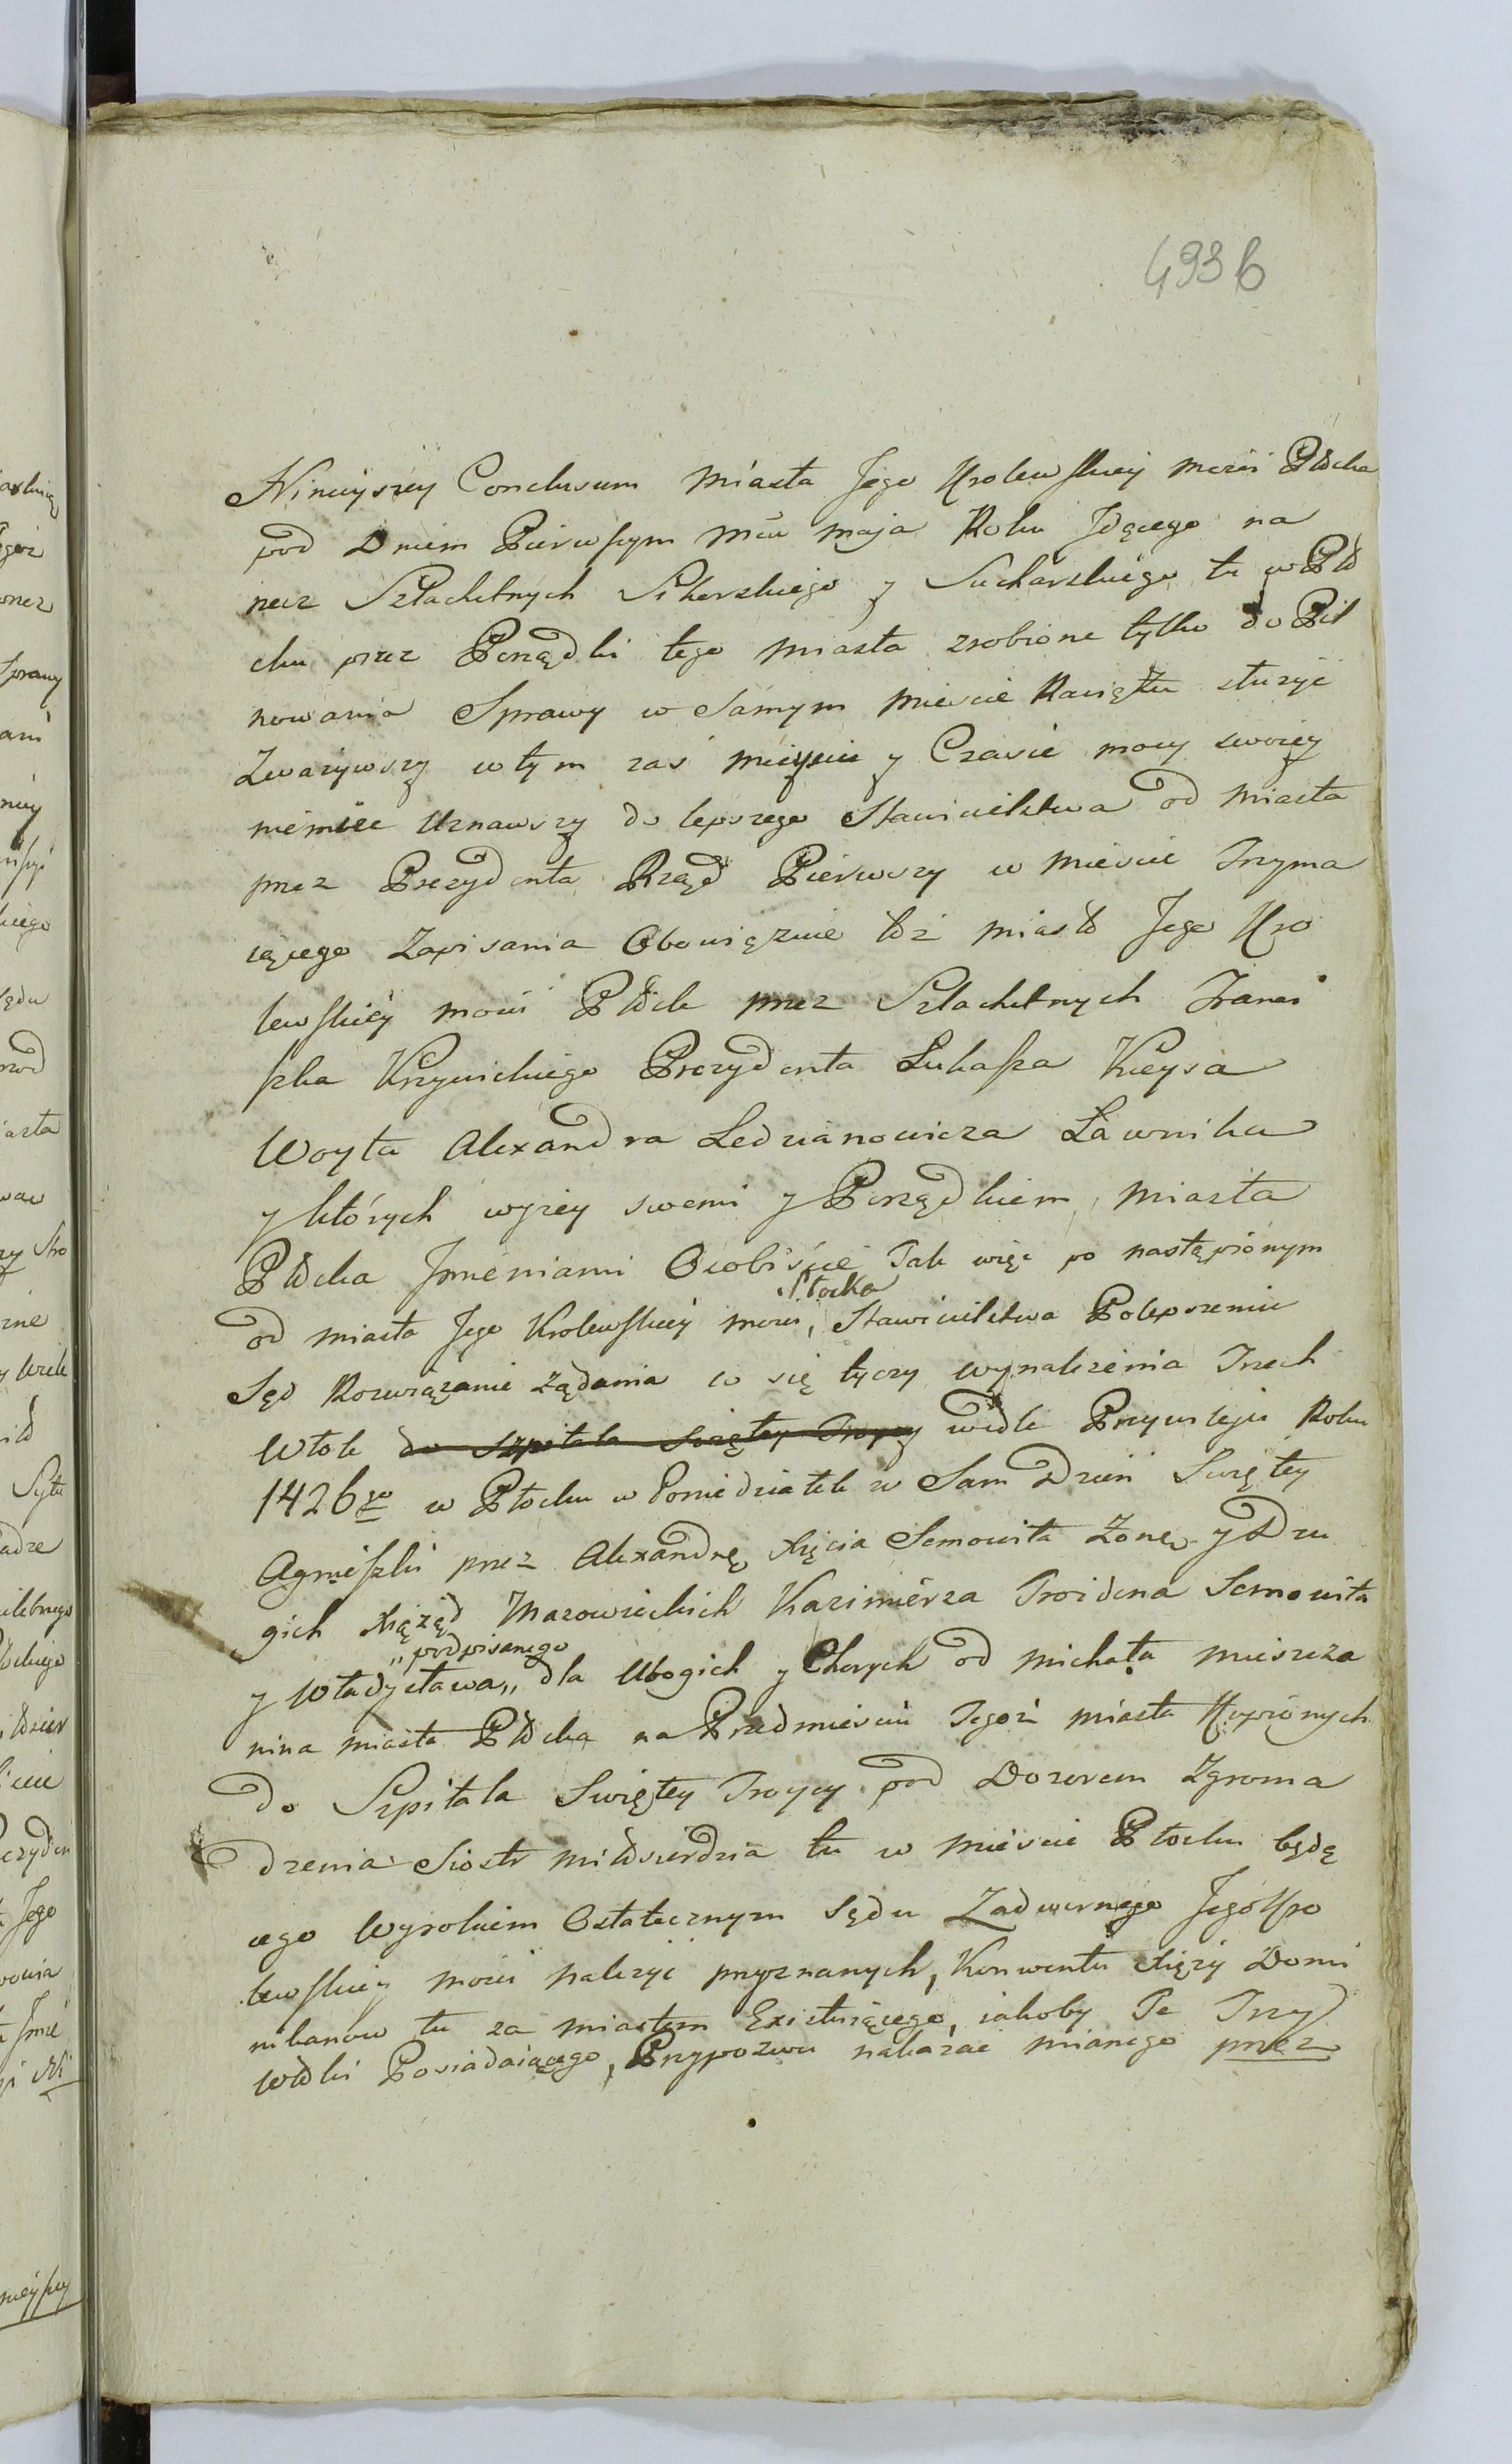 493b
Nineyszey Conclusum Miasta Jego Krolewskiey mości Płocka
pod Dniem Pierwszym Mca Maja Roku Idącego na
rzecz Szlachetnych Sikorskiego y Sucharskiego tu w Pło
cku przez Porządki tego Miasta zrobione tylko do Pil
nowania Sprawy w Samym Mieście Raciążu służyć
Zważywszy w tym zaś mieyscu y Czasie mocy swoiey
niemieć Uznawszy do lepszego Stawicielstwa od Miasta
przez Prezydenta Rząd Pierwszy w Mieście Trzyma
iącego Zapisania Obowiązuie toż Miasto Jego Kro
lewskiey mości Płock przez Szlachetnych Franci
szka Krzywickiego Prezydenta Łukasza Kieysa
Woyta Alexandra Ledzianowicza Ławnika
y których wyżey swemi y Porządkiem Miasta
Płocka Imieniami Osobiście Tak więc po nastąpionym
od Miasta Jego Krolewskiey mości, Płocka Stawicielstwa Polepszeniu
Sąd Rozwiązanie żądania co się tyczy wynalezienia Trzech
Włok do Szpitala Swiętey Troycy wedle Przywileju Roku
1426go w Płocku w Poniedziałek w Sam Dzień Swiętey
Agnieszki przez Alexandrę Xięcia Semowita Zonę y Dru
gich Xiążąd Mazowieckich Kazimierza Troidena Semowita
y Władysława „podpisanego„ dla Ubogich y Chorych od Michała mieszcza
nina miasta Płocka na Przedmieściu Tegoż miasta Kupionych
do Szpitala Swiętey Troycy pod Dozorem Zgroma
dzenia Siostr miłosierdzia tu w Mieście Płocku będą
cego Wyrokiem Ostatecznym Sądu Zadwornego Jego Kro
lewskiey mości należyć przyznanych, Konwentu Xięży Domi
nikanow tu za Miastem Existuiącego, iakoby Te Trzy
Włoki Posiadaiącego, Przypozwu nakazać mianego przez